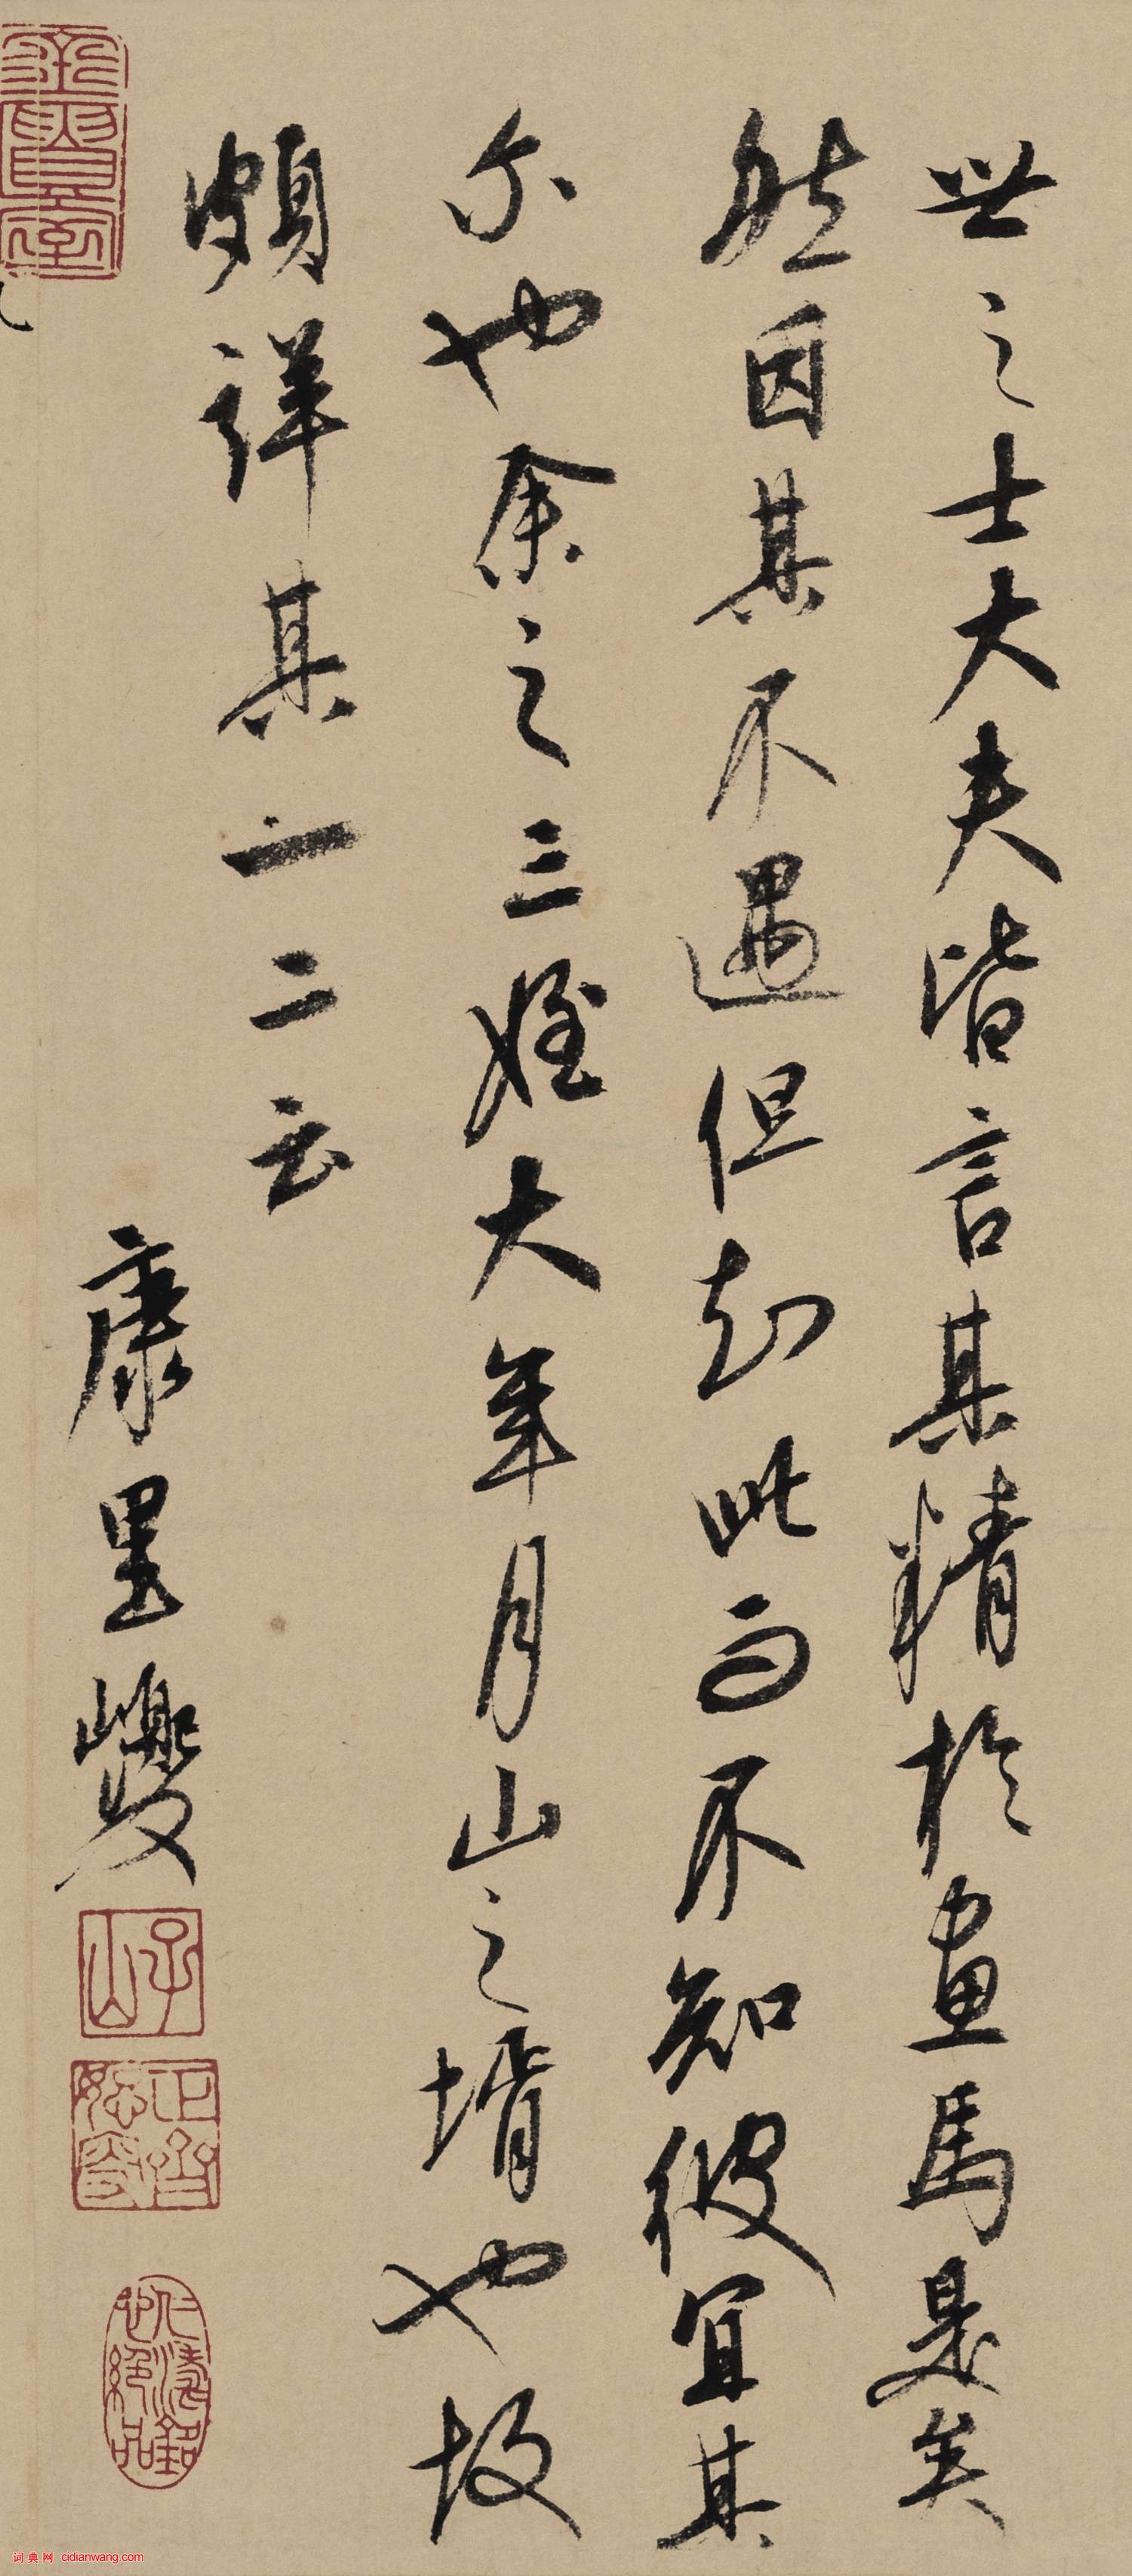 世之士大夫皆言其精於畫馬是矣
然因其不遇但知此而不知彼宜其
尔也余之三姪大年月山之壻也故
頗詳其一二云
康里巙
子山
正齋恕叟
词典网 cidianwang.com